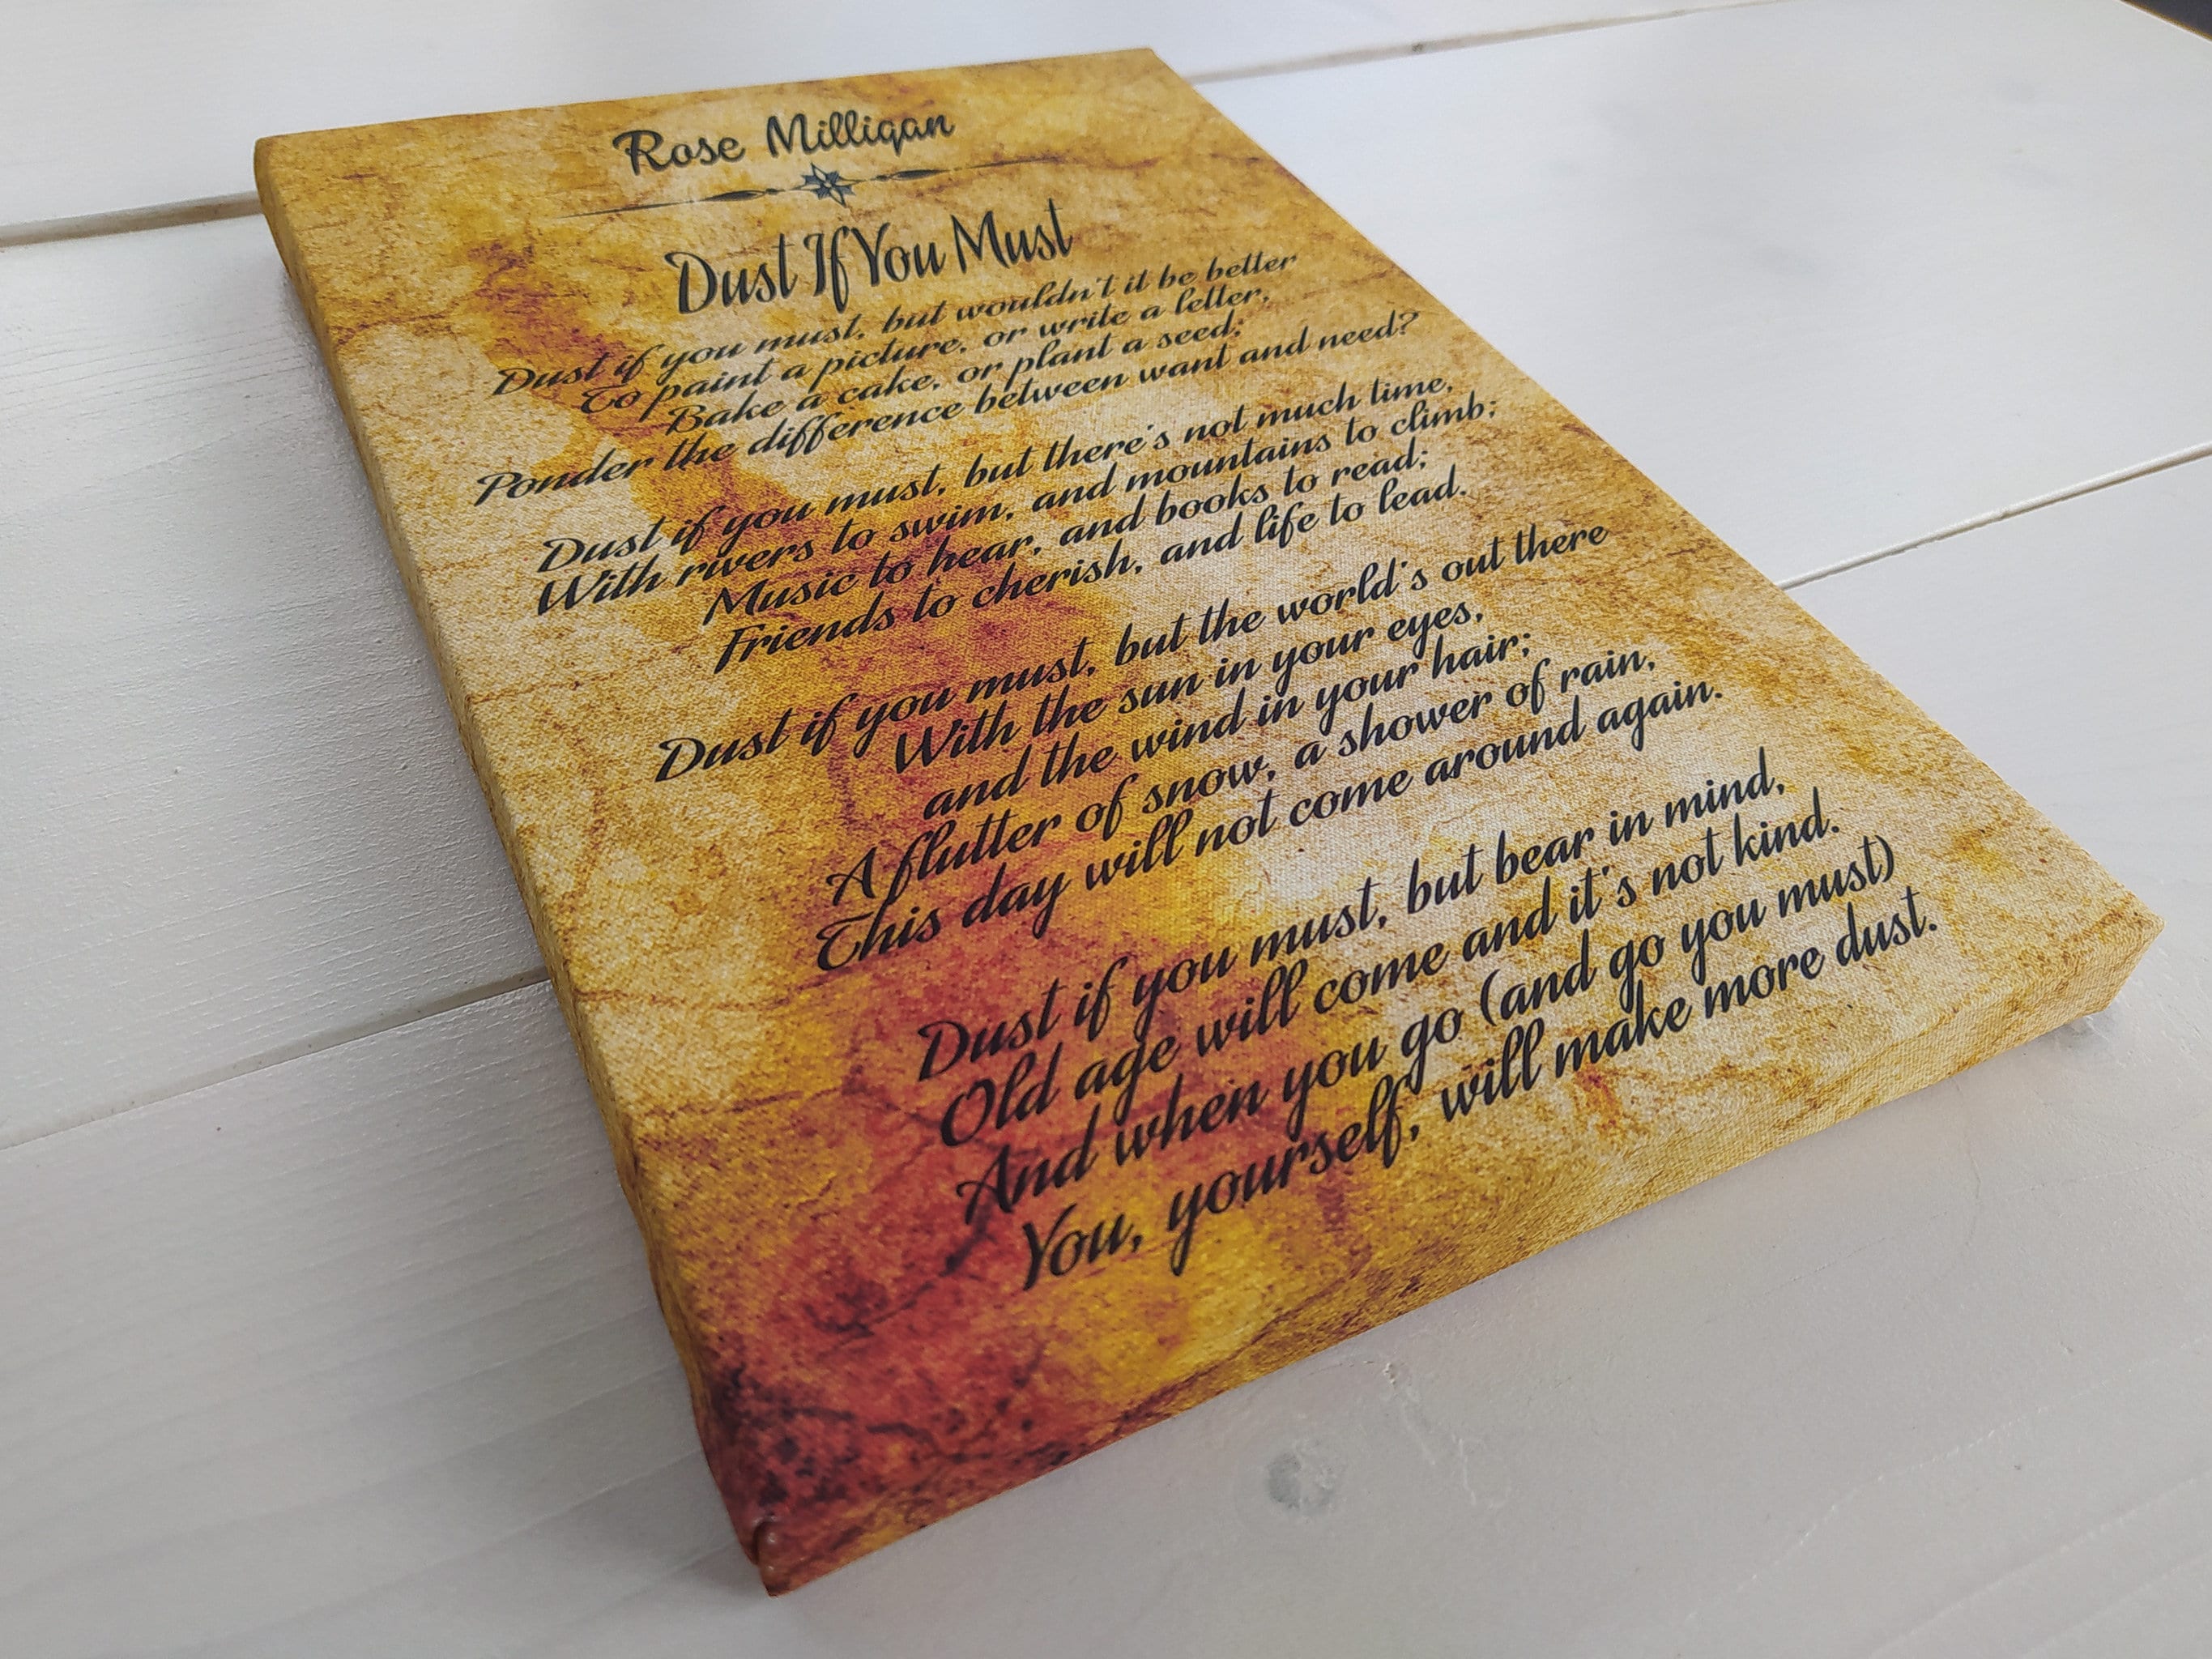 Rose Milligan
Dust If You Must
Dust if you must, but wouldn't it be better
To paint a picture, or write a letter,
Bake a cake, or plant a seed;
Ponder the difference between want and need?
Dust if you must, but there's not much time,
With rivers to swim, and mountains to climb;
Music to hear, and books to read;
Friends to cherish, and life to lead.
Dust if you must, but the world's out there
With the sun in your eyes,
and the wind in your hair;
A flutter of snow, a shower of rain,
This day will not come around again.
Dust if you must, but bear in mind,
Old age will come and it's not kind.
And when you go (and go you must)
You, yourself, will make more dust.